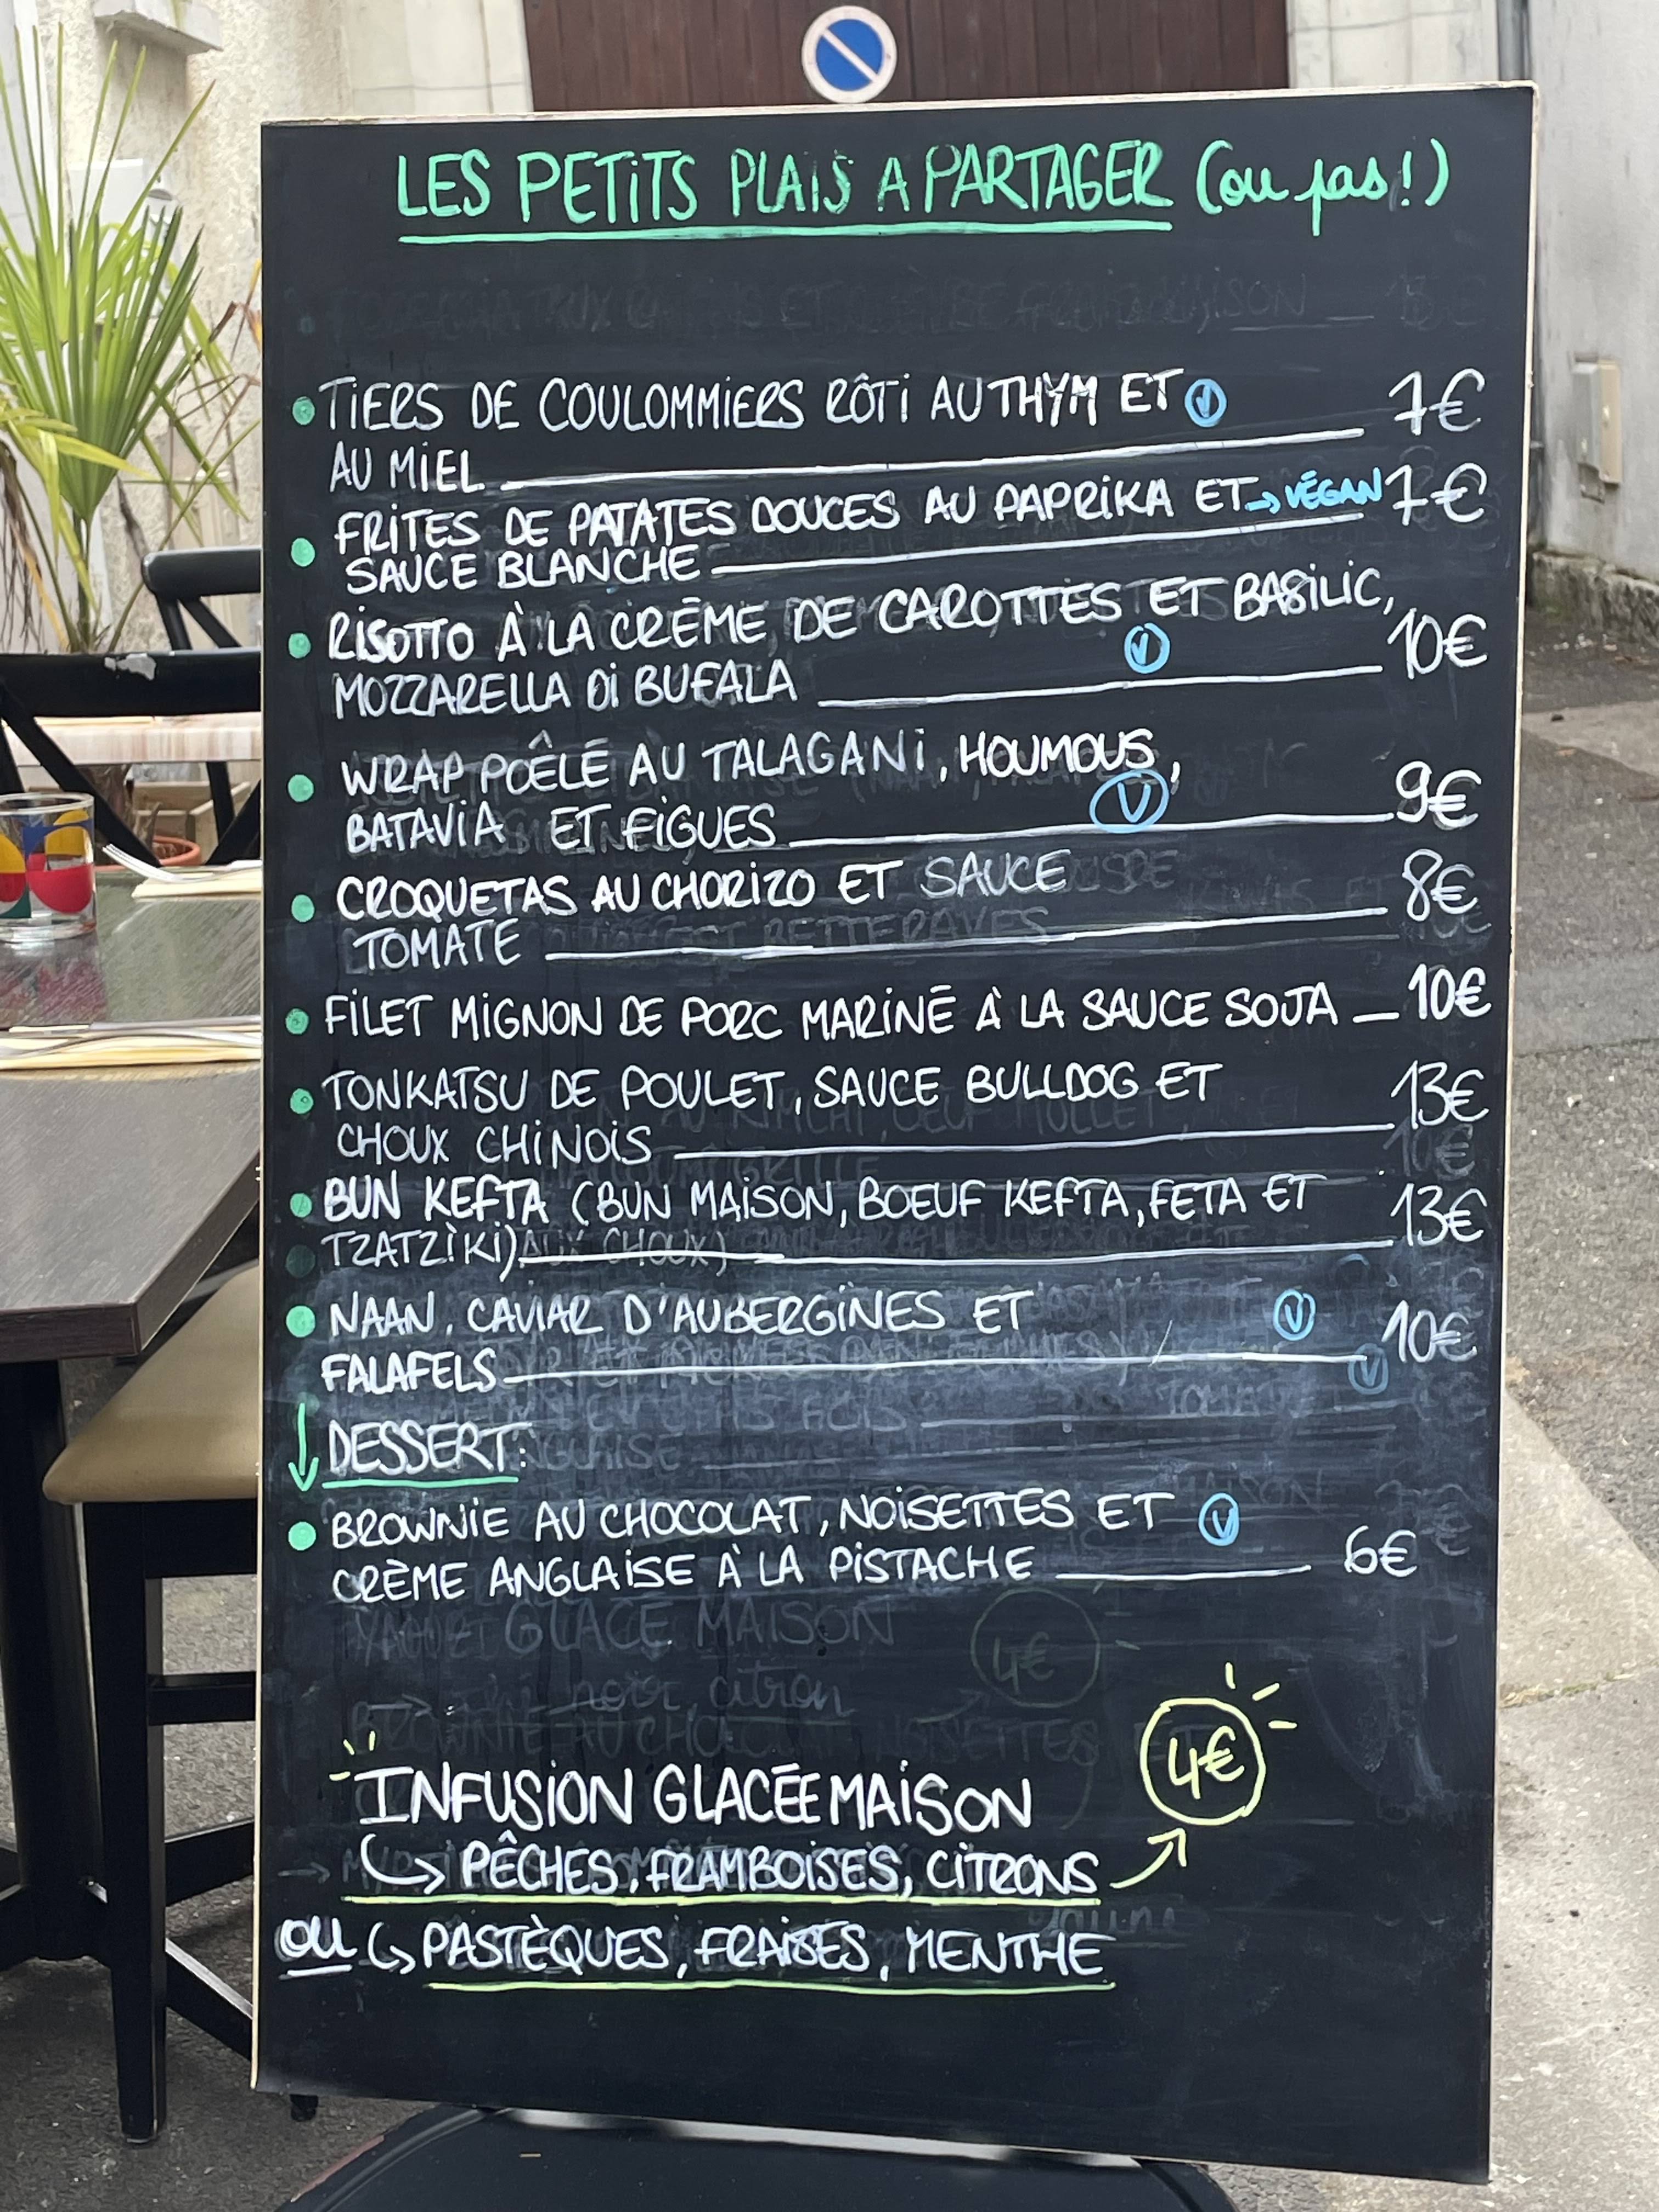 LES PETITS PLAIS A PARTAGER (ou pas!)
• TIERS DE COULOMMIERS RÔTI AU THYM ET Ⓥ 7€
AU MIEL
• FRITES DE PATATES DOUCES AU PAPRIKA ET → VÉGAN 7€
SAUCE BLANCHE
• RISOTTO À LA CRÈME DE CAROTTES ET BASILIC,
MOZZARELLA DI BUFALA Ⓥ 10€
• WRAP POÊLÉ AU TALAGANI, HOUMOUS,
BATAVIA ET FIGUES Ⓥ 9€
• CROQUETAS AU CHORIZO ET SAUCE 8€
TOMATE
• FILET MIGNON DE PORC MARINÉ À LA SAUCE SOJA 10€
• TONKATSU DE POULET, SAUCE BULLDOG ET 13€
CHOUX CHINOIS
• BUN KEFTA (BUN MAISON, BOEUF KEFTA, FETA ET 13€
TZATZIKI)
• NAAN, CAVIAR D'AUBERGINES ET Ⓥ 10€
FALAFELS
↓ DESSERT:
• BROWNIE AU CHOCOLAT, NOISETTES ET Ⓥ
CRÈME ANGLAISE À LA PISTACHE 6€
INFUSION GLACÉE MAISON 4€
↪ PÊCHES, FRAMBOISES, CITRONS
OU ↪ PASTÈQUES, FRAISES, MENTHE